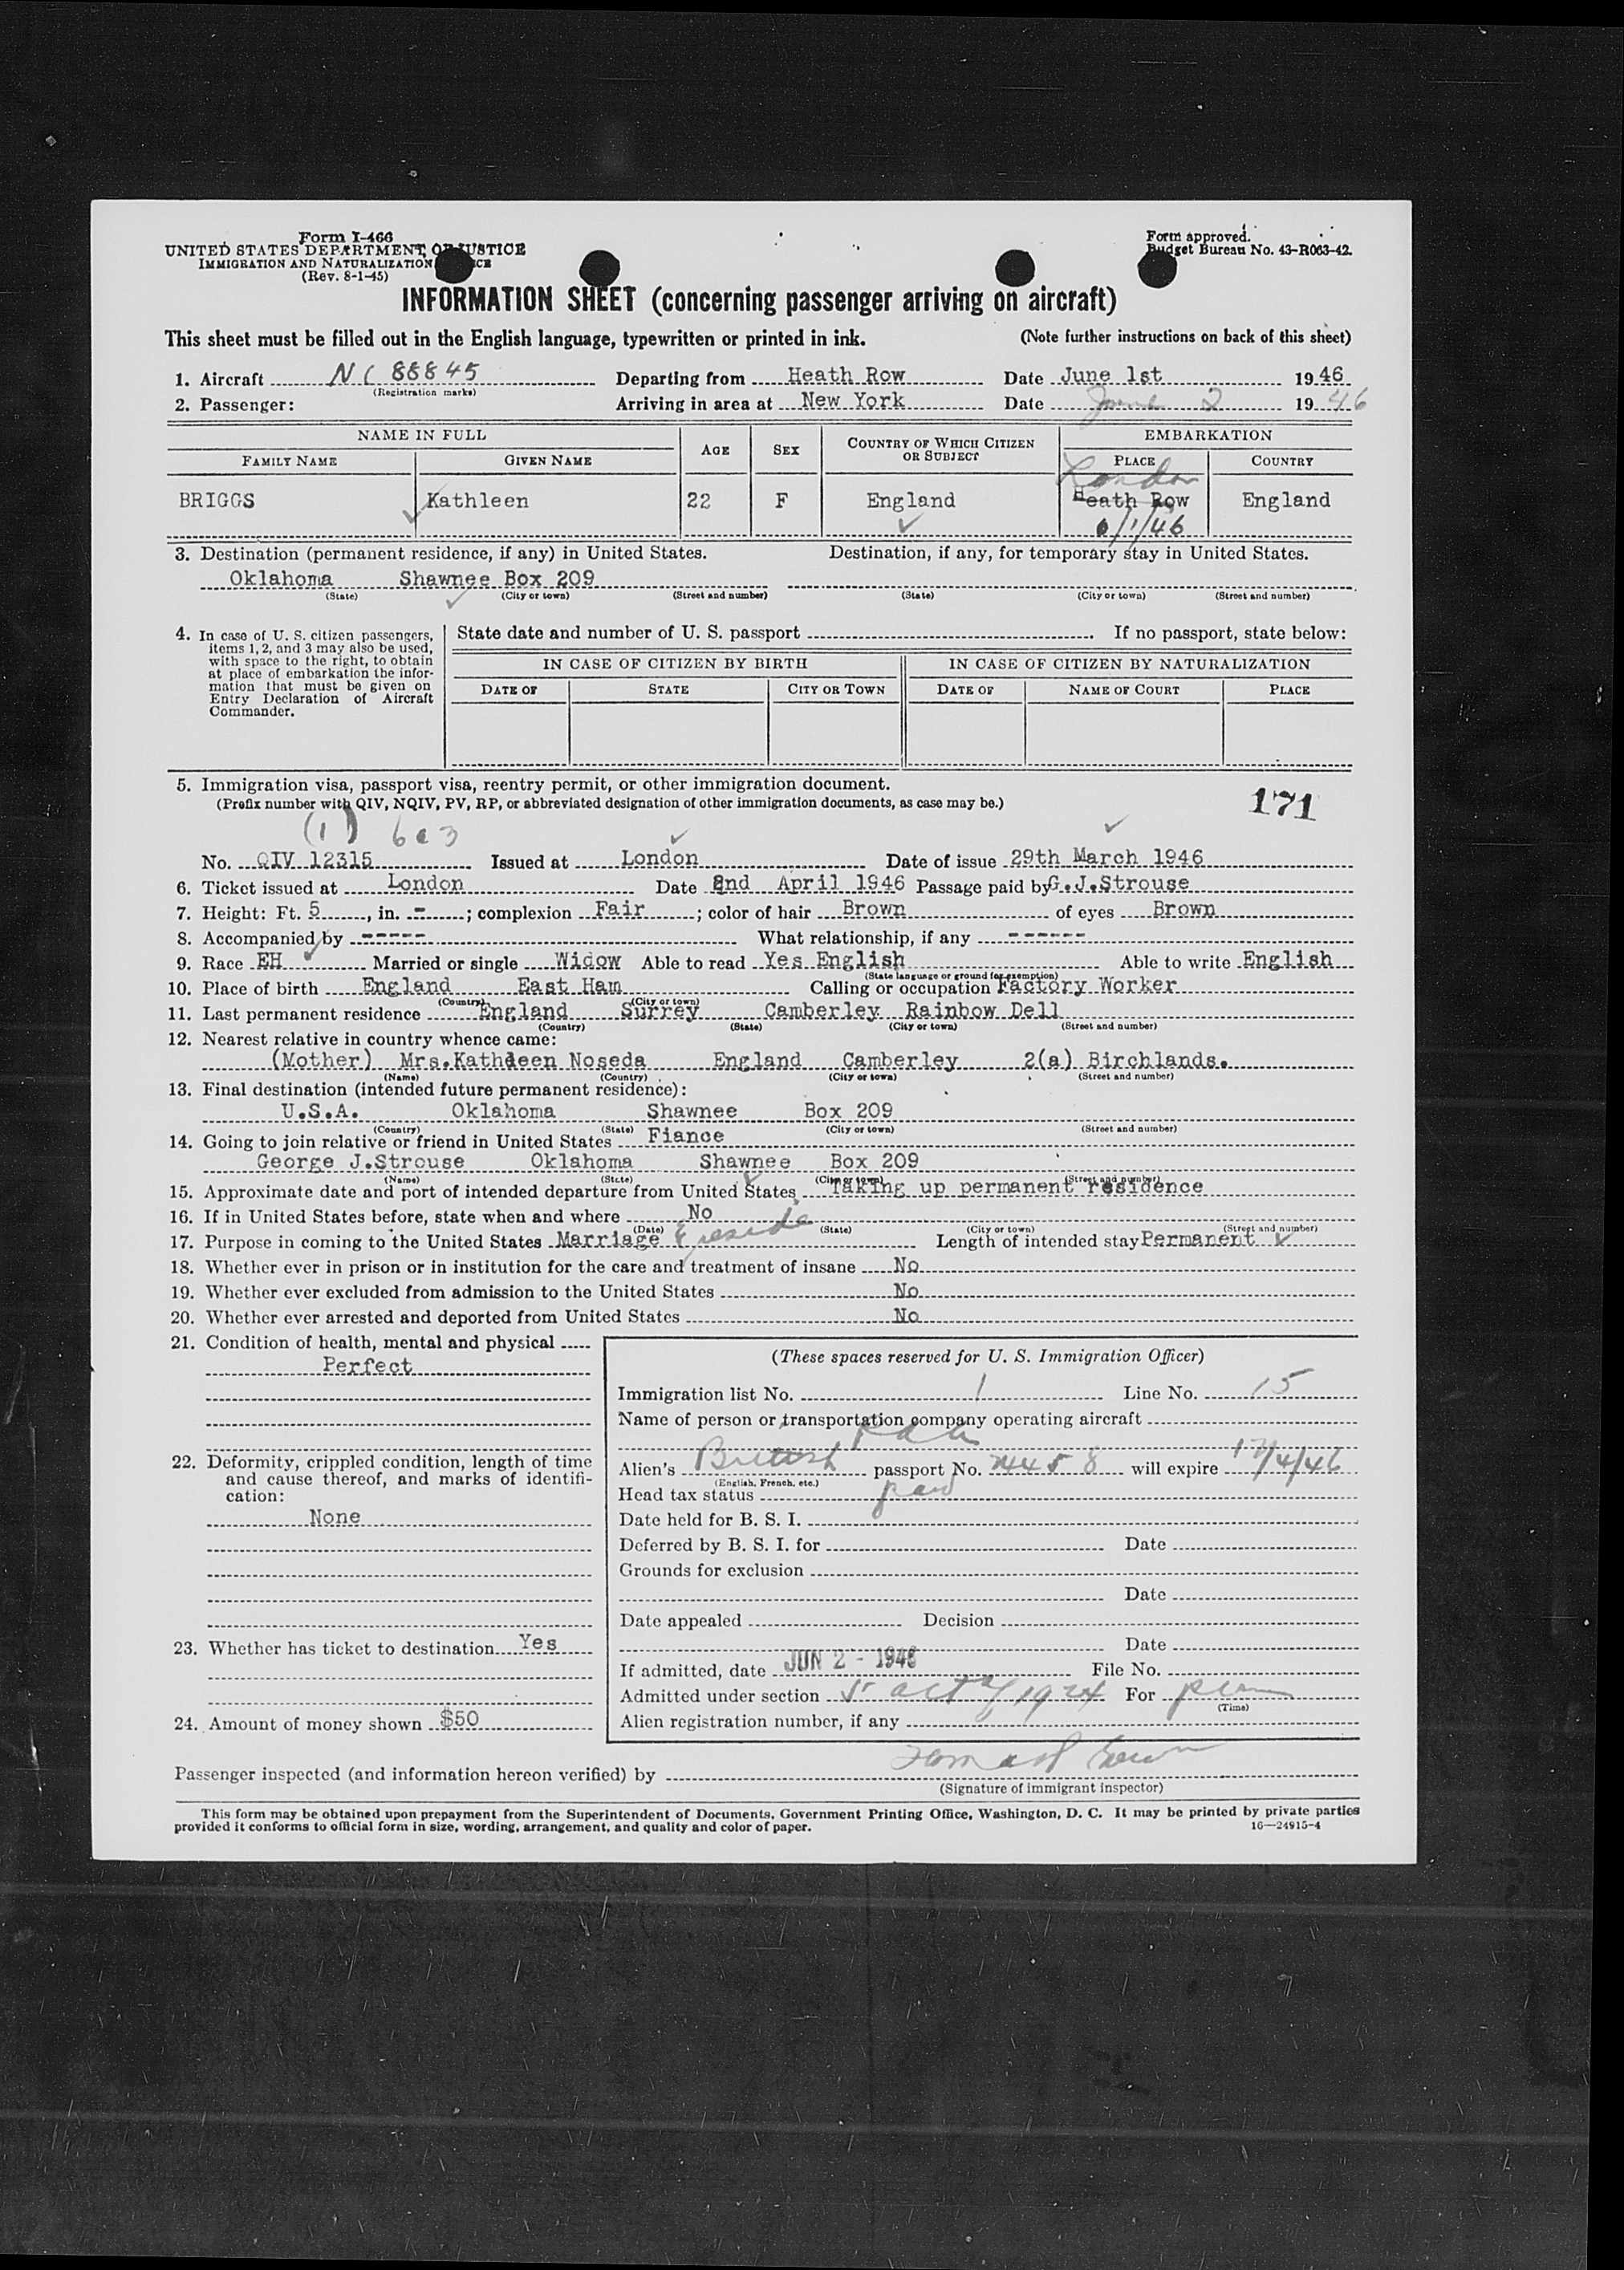 Form I-466
UNITED STATES DEPARTMENT OF JUSTICE
IMMIGRATION AND NATURALIZATION
(Rev. 8-1-45)
Form approved.
Budget Bureau No. 43-R063-42.
INFORMATION SHEET (concerning passenger arriving on aircraft)
This sheet must be filled out in the English language, typewritten or printed in ink. (Note further instructions on back of this sheet)
1. Aircraft NC 88845 Departing from Heath Row Date June 1st 1946
(Registration marks)
2. Passenger: Arriving in area at New York Date June 2 1946
NAME IN FULL AGE SEX COUNTRY OF WHICH CITIZEN OR SUBJECT EMBARKATION
FAMILY NAME GIVEN NAME PLACE COUNTRY
London
BRIGGS Kathleen 22 F England Heath Row England
6/1/46
3. Destination (permanent residence, if any) in United States. Destination, if any, for temporary stay in United States.
Oklahoma Shawnee Box 209
(State) (City or town) (Street and number) (State) (City or town) (Street and number)
4. In case of U. S. citizen passengers, items 1, 2, and 3 may also be used, with space to the right, to obtain at place of embarkation the information that must be given on Entry Declaration of Aircraft Commander.
State date and number of U. S. passport . If no passport, state below:
IN CASE OF CITIZEN BY BIRTH IN CASE OF CITIZEN BY NATURALIZATION
DATE OF STATE CITY OR TOWN DATE OF NAME OF COURT PLACE
5. Immigration visa, passport visa, reentry permit, or other immigration document.
(Prefix number with QIV, NQIV, PV, RP, or abbreviated designation of other immigration documents, as case may be.)
171
(1)
No. QIV 12315 Issued at London Date of issue 29th March 1946
6. Ticket issued at London Date 2nd April 1946 Passage paid by G.J.Strouse
7. Height: Ft. 5, in. -; complexion Fair; color of hair Brown of eyes Brown
8. Accompanied by ----- What relationship, if any ------
9. Race EH Married or single Widow Able to read Yes English Able to write English
(State language or ground for exemption)
10. Place of birth England East Ham Calling or occupation Factory Worker
(Country) (City or town)
11. Last permanent residence England Surrey Camberley Rainbow Dell
(Country) (State) (City or town) (Street and number)
12. Nearest relative in country whence came:
(Mother) Mrs.Kathleen Noseda England Camberley 2(a) Birchlands.
(Name) (Country) (City or town) (Street and number)
13. Final destination (intended future permanent residence):
U.S.A. Oklahoma Shawnee Box 209
(Country) (State) (City or town) (Street and number)
14. Going to join relative or friend in United States Fiance
George J.Strouse Oklahoma Shawnee Box 209
(Name) (State) (City or town) (Street and number)
15. Approximate date and port of intended departure from United States Taking up permanent residence
16. If in United States before, state when and where No
(Date) (State) (City or town) (Street and number)
17. Purpose in coming to the United States Marriage & reside Length of intended stay Permanent
18. Whether ever in prison or in institution for the care and treatment of insane No
19. Whether ever excluded from admission to the United States No
20. Whether ever arrested and deported from United States No
21. Condition of health, mental and physical
Perfect
22. Deformity, crippled condition, length of time and cause thereof, and marks of identification:
None
23. Whether has ticket to destination Yes
24. Amount of money shown $50
(These spaces reserved for U. S. Immigration Officer)
Immigration list No. 1 Line No. 15
Name of person or transportation company operating aircraft
Alien's British passport No. will expire 17/4/46
(English, French, etc.)
Head tax status paid
Date held for B. S. I.
Deferred by B. S. I. for Date
Grounds for exclusion
Date
Date appealed Decision
Date
If admitted, date JUN 2 - 1946 File No.
Admitted under section 5 act of 1924 For perm
(Time)
Alien registration number, if any
Passenger inspected (and information hereon verified) by
(Signature of immigrant inspector)
This form may be obtained upon prepayment from the Superintendent of Documents, Government Printing Office, Washington, D. C. It may be printed by private parties
provided it conforms to official form in size, wording, arrangement, and quality and color of paper. 16—24915-4